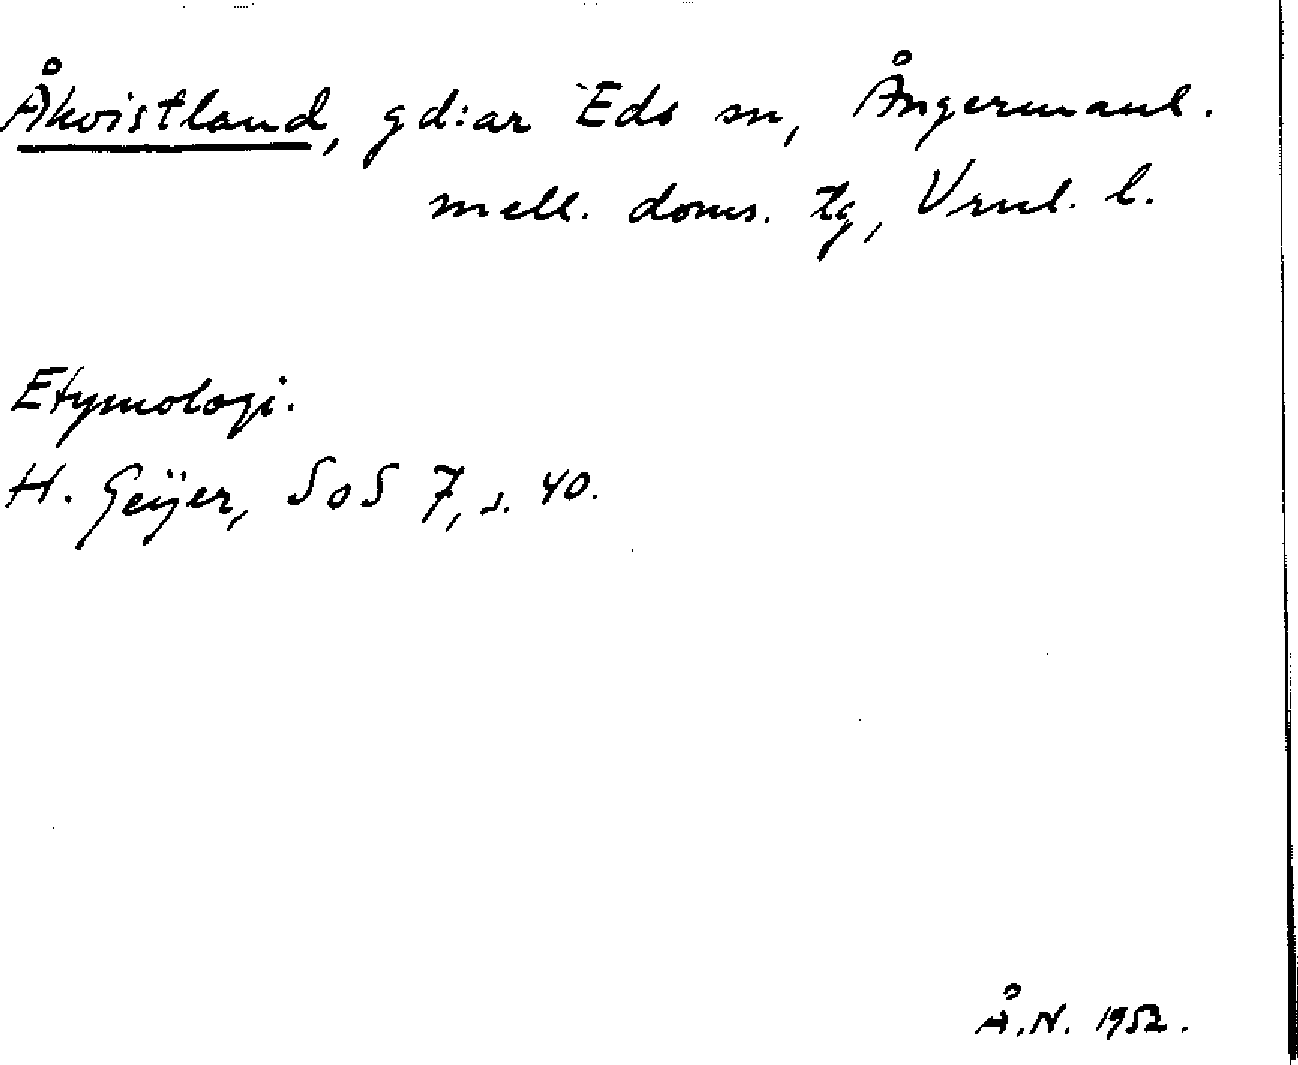 Åkvistland, gd:ar Eds sn, Ångermanl.
mell. doms. tg, Vrnl. l.
Etymologi.
H. Geijer, SoS 7, s. 40.
Å.N. 1952.